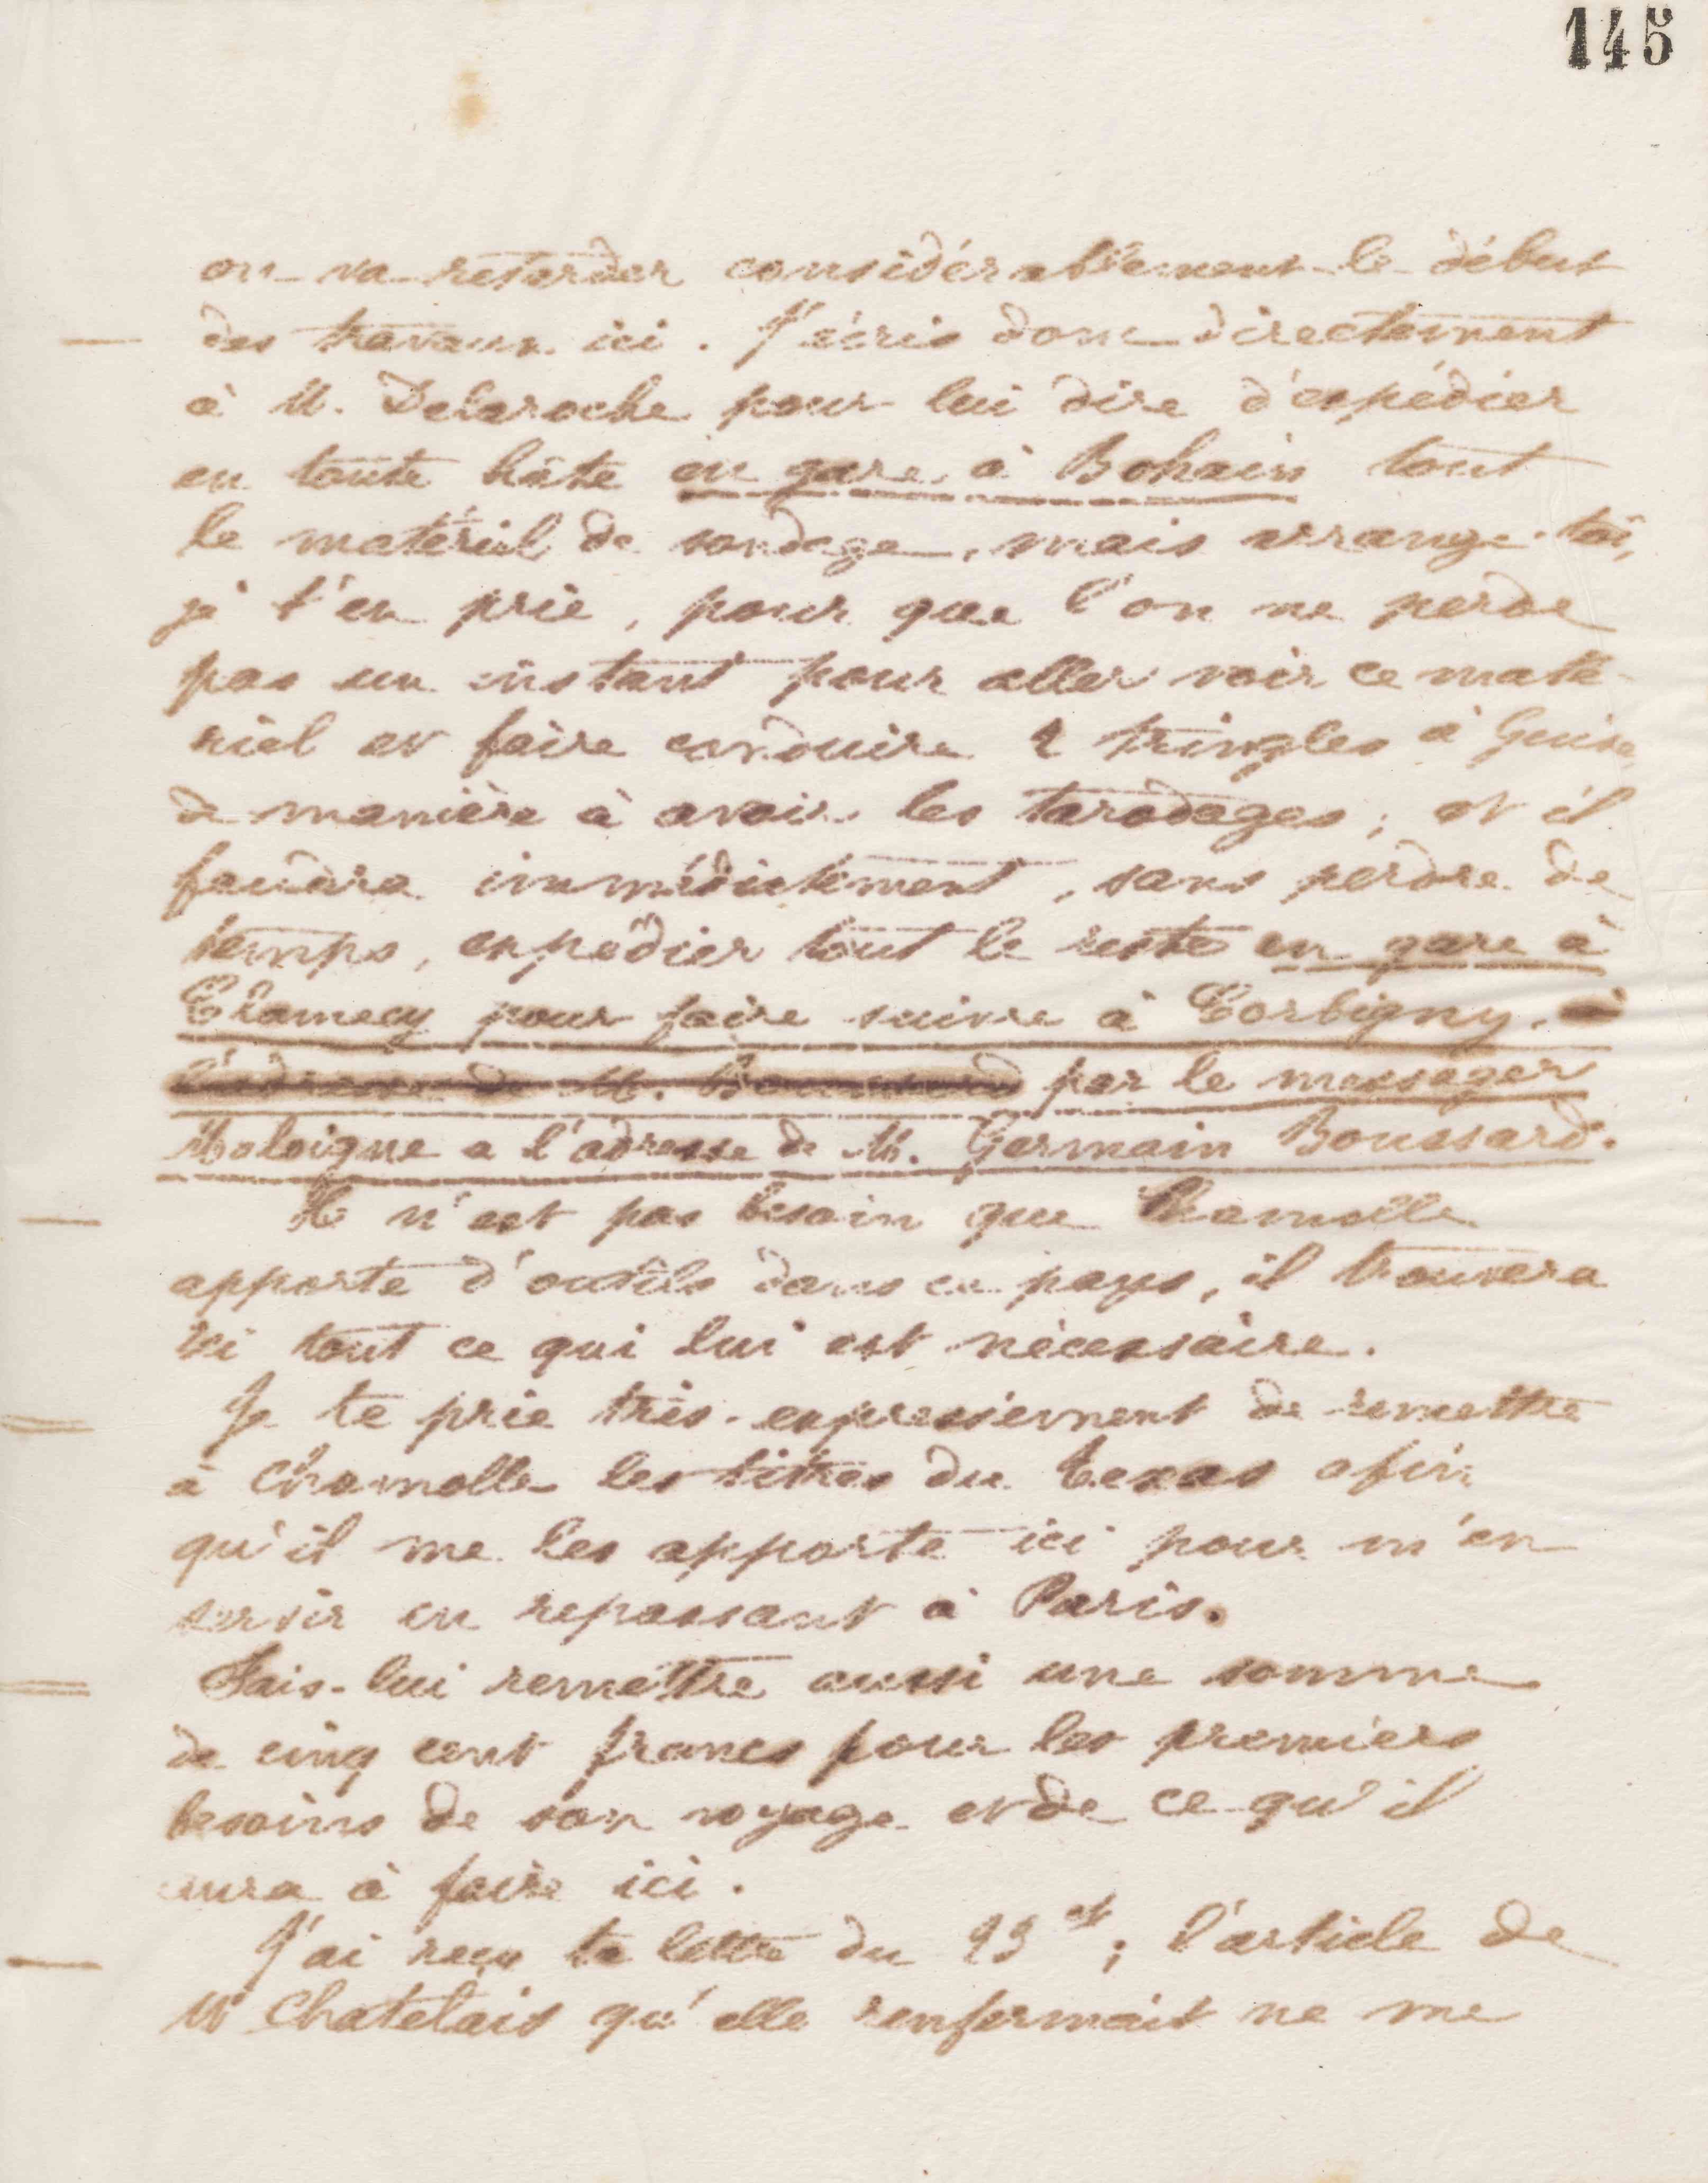 145
on va retarder considérablement le début
des travaux ici. J'écris donc directement
à M. Delaroche pour lui dire d'expédier
en toute hâte en gare à Bohain tout
le matériel de sondage, mais arrange-toi,
je t'en prie, pour que l'on ne perde
pas un instant pour aller voir ce maté-
riel et faire conduire 2 tringles à Guise,
de manière à avoir les taraudages; et il
faudra immédiatement, sans perdre de
temps, expédier tout le reste en gare à
Clamecy pour faire suivre à Corbigny, à
l'adresse de M. par le messager
Maloigne a l'adresse de M. Germain Boussard.
Il n'est pas besoin que Chamolle
apporte d'outils dans ce pays, il trouvera
ici tout ce qui lui est nécessaire.
Je te prie très-expressément de remettre
à Chamolle les titres du Texas afin
qu'il me les apporte ici pour m'en
servir en repassant à Paris.
Fais-lui remettre aussi une somme
de cinq cent francs pour les premiers
besoins de son voyage et de ce qu'il
aura à faire ici.
J'ai reçu ta lettre du ; l'article de
Mr Chatelais qu'elle renfermait ne me